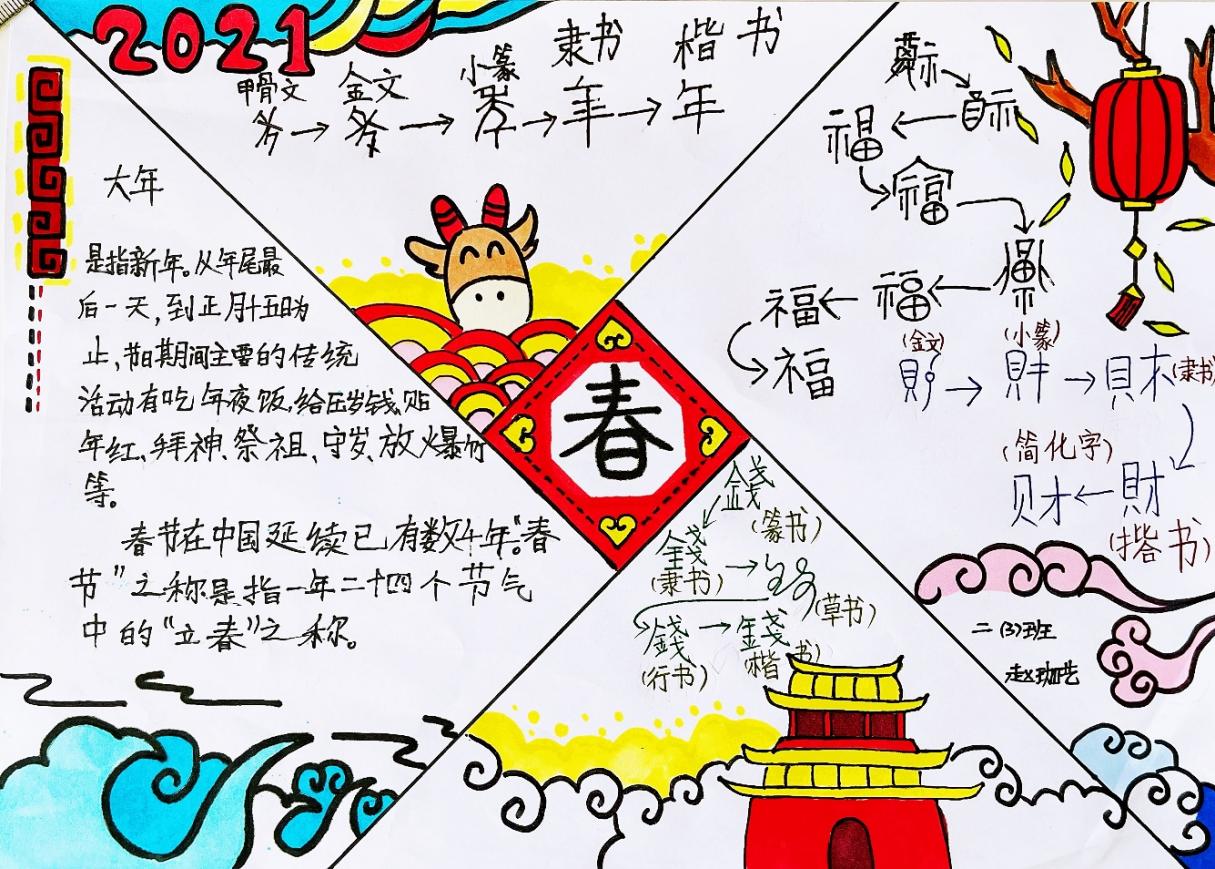 2021
甲骨文 金文 小篆 隶书 楷书
年
大年
是指新年。从年尾最
后一天,到正月十五日为
止,节日期间主要的传统
活动有吃年夜饭,给压岁钱、贴
年红、拜神、祭祖、守岁、放爆竹
等。
春节在中国延续已有数千年。“春
节”之称是指一年二十四个节气
中的“立春”之称。
春
福
福
福
福
福
(金文) (小篆) (隶书)
財
(楷书)
(简化字)
财
錢
(篆书)
錢
(隶书)
(草书)
錢
(行书)
錢
(楷书)
二(3)班